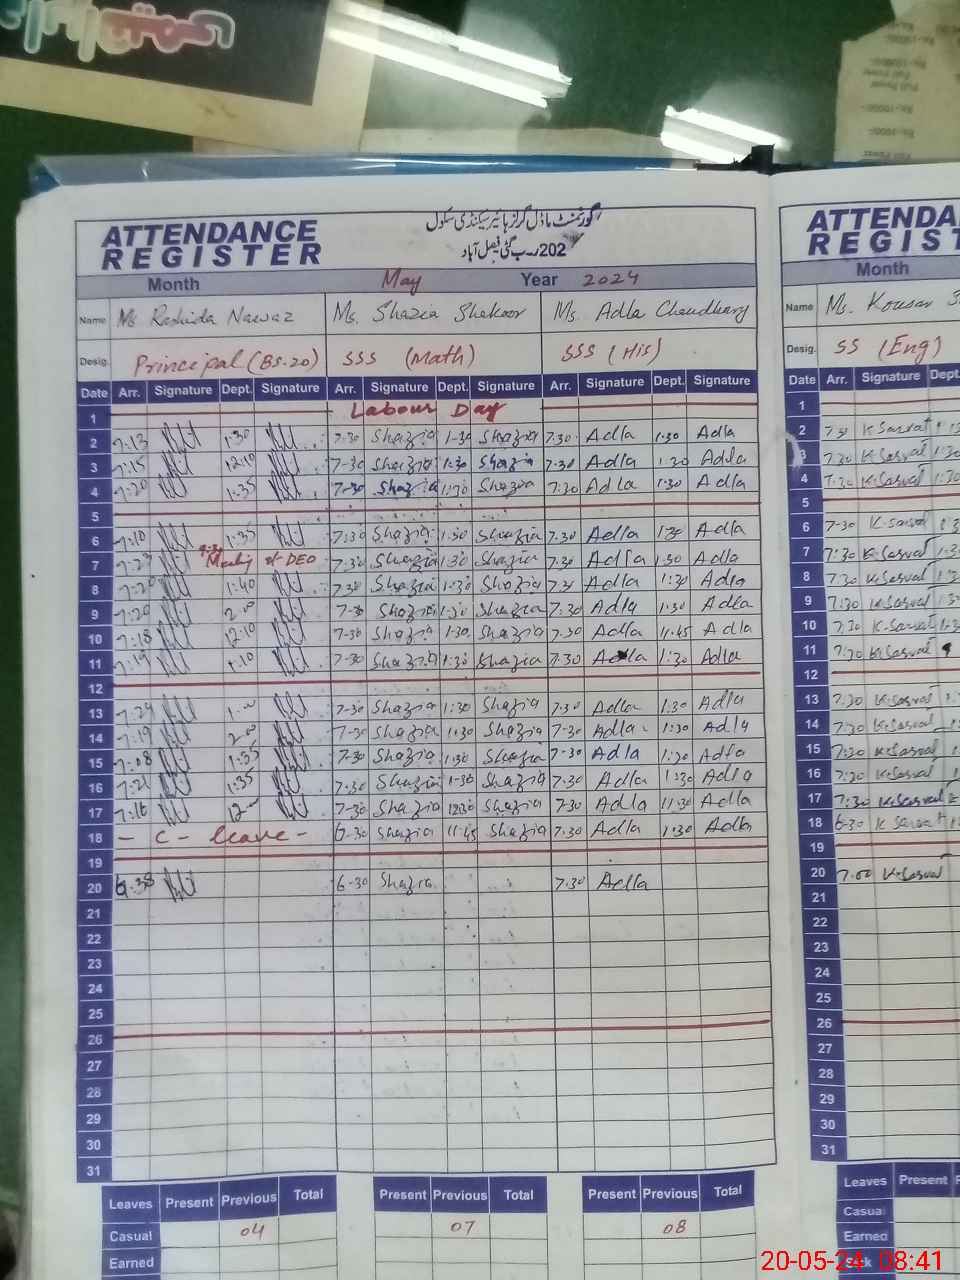 گورنمنٹ ماڈل گرلز ہائیر سیکنڈری سکول
202 ر۔ب گٹی فیصل آباد
ATTENDANCE REGISTER
Month May Year 2024
Name Ms Rashida Nawaz Ms. Shazia Shakoor Ms. Adla Chaudhary
Desig. Principal (BS-20) SSS (Math) SSS (His)
Date Arr. Signature Dept. Signature Arr. Signature Dept. Signature Arr. Signature Dept. Signature
1 Labour Day
2 7:13 1:30 7-30 Shazia 1-30 Shazia 7.30 Adla 1.30 Adla
3 7:15 12:10 7-30 Shazia 1:30 Shazia 7.30 Adla 1.30 Adla
4 7:20 1:35 7-30 Shazia 1:30 Shazia 7:30 Adla 1:30 Adla
5
6 7:10 1:35 7:30 Shazia 1:30 Shazia 7.30 Adla 1:30 Adla
7 7:23 DEO 7-30 Shazia 1:30 Shazia 7.30 Adla 1:30 Adla
8 1:40 7:30 Shazia 1-30 Shazia 7.30 Adla 1:30 Adla
9 7:20 2:00 7-30 Shazia 1:30 Shazia 7:30 Adla 1:30 Adla
10 7:18 12:10 7-30 Shazia 1-30 Shazia 7.30 Adla 11.45 Adla
11 7:19 1:10 7-30 Shazia 1:30 Shazia 7:30 Adla 1:30 Adla
12
13 7:24 7-30 Shazia 1:30 Shazia 7.30 Adla 1:30 Adla
14 7:19 2:00 7-30 Shazia 1:30 Shazia 7-30 Adla 1:30 Adla
15 7:08 1:35 7-30 Shazia 1:30 Shazia 7-30 Adla 1:30 Adla
16 7:21 1:35 7-30 Shazia 1-30 Shazia 7.30 Adla 1:30 Adla
17 7:16 7-30 Shazia 12:30 Shazia 7-30 Adla 11:30 Adla
18 - C - leave - 6-30 Shazia 11:45 Shazia 7.30 Adla 1:30 Adla
19
20 6:38 6-30 Shazia 7.30 Adla
21
22
23
24
25
26
27
28
29
30
31
Leaves Present Previous Total Present Previous Total Present Previous Total
Casual 04 07 08
Earned
ATTENDA
REGIST
Month
Name Ms. Kousar
Desig. SS (Eng)
Date Arr. Signature Dept
1
2 7:30 K.Sarwat
3 7:30 K.Sarwat 1:30
4 7:30 K.Sarwat 1:30
5
6 7-30 K.Sarwat
7 7:30 K.Sarwat
8 7.30 K.Sarwat
9 7:30 K.Sarwat
10 7:30 K.Sarwat
11 7:30 K.Sarwat
12
13 7:30 K.Sarwat
14 7:30 K.Sarwat
15 7:30 K.Sarwat
16 7:30 K.Sarwat
17 7:30 K.Sarwat
18 6-30 K Sarwat
19
20 7.00 K.Sarwat
21
22
23
24
25
26
27
28
29
30
31
Leaves Present
Casual
Earned
Sick
20-05-24 08:41